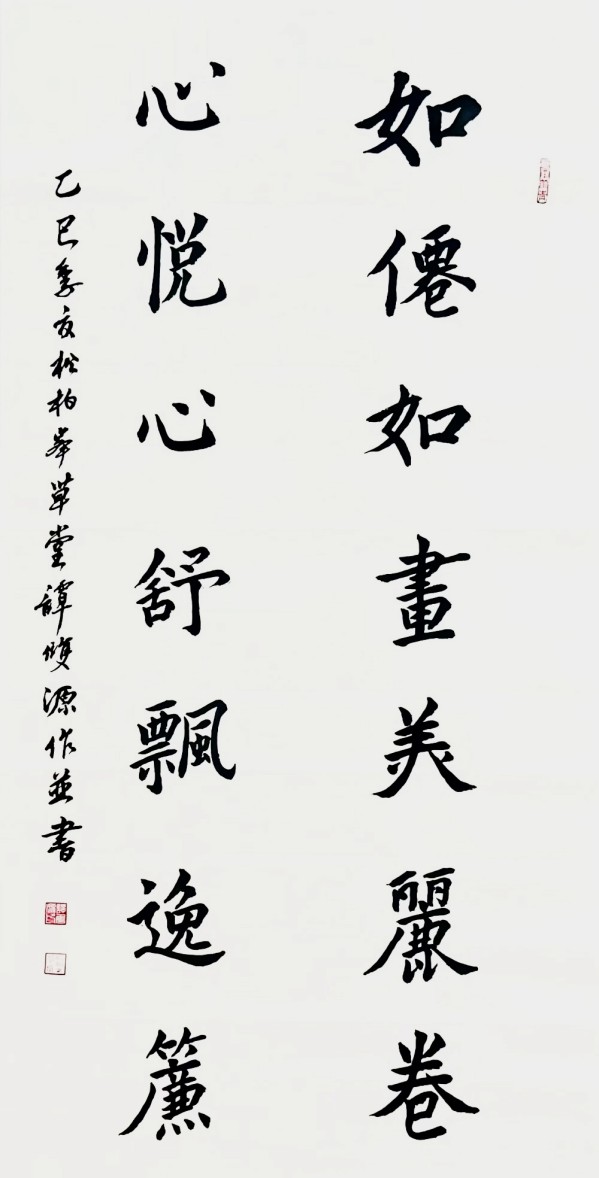 如僊如畫美麗卷
心悅心舒飄逸簾
乙巳季夏松柏峯草堂譚雙源作並書